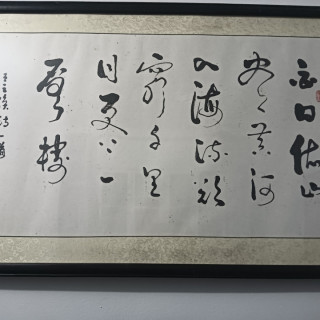 白日依山
尽黄河
入海流欲
穷千里
目更上一
层楼
王之涣诗